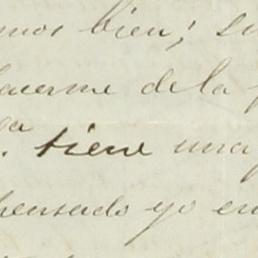 mos bien; su
hacerme de la p
ga
. tiene una
pensado yo en